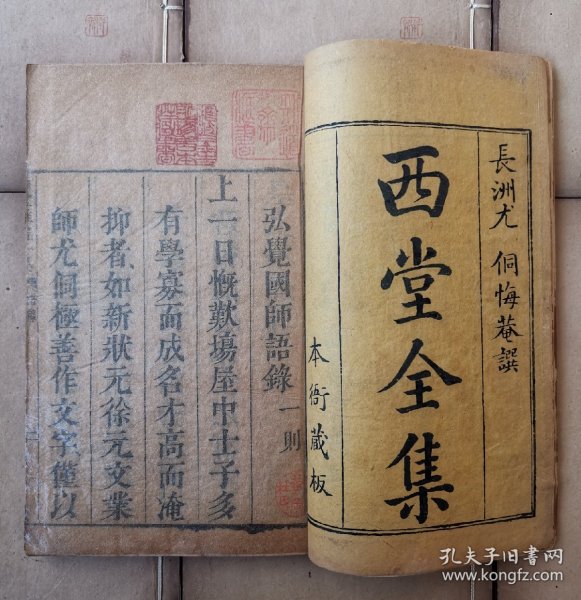 長洲尤 侗悔菴譔
西堂全集
本衙藏板
弘覺國師語錄 一則
上一日慨歎場屋中士子多
有學寡而成名才高而淹
抑者如新狀元徐元文業
師尤侗極善作文字僅以
孔夫子旧书网
www.kongfz.com